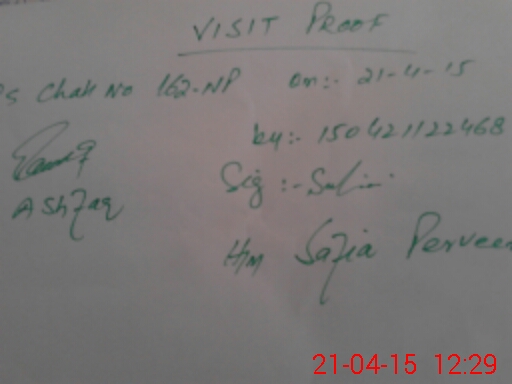 VISIT PROOF
PS Chak No 162-NP on:- 21-4-15
by:- 150421122468
Sig :-
Ashfaq
HM Safia Perveen
21-04-15 12:29